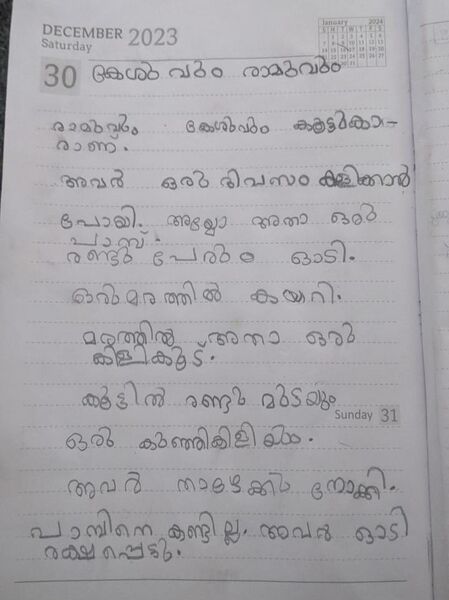 DECEMBER 2023
Saturday
January 2024
30 കേശു വും രാമുവും
രാമുവും കേശുവും കൂട്ടുകാ-
രാണ്.
അവർ ഒരു ദിവസം കളിക്കാൻ
പോയി. അയ്യോ അതാ ഒരു
പാമ്പ്.
രണ്ടു പേരും ഓടി.
ഒരു മരത്തിൽ കയറി.
മരത്തിൽ അതാ ഒരു
കിളികൂട്.
കൂട്ടിൽ രണ്ടു മുട്ടയും
Sunday 31
ഒരു കുഞ്ഞികിളിയും.
അവർ താഴേക്കു നോക്കി.
പാമ്പിനെ കണ്ടില്ല. അവർ ഓടി
രക്ഷപ്പെട്ടു.